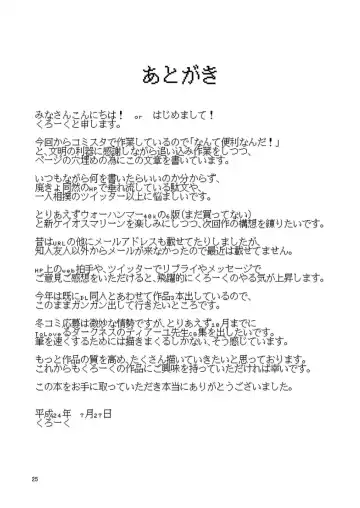 あとがき
みなさんこんにちは！　or　はじめまして！
くろーくと申します。
今回からコミスタで作業しているので「なんて便利なんだ！」
と、文明の利器に感謝しながら追い込み作業をしつつ、
ページの穴埋めの為にこの文章を書いています。
いつもながら何を書いたらいいのか分からず、
廃きょ同然のHPで垂れ流している駄文や、
一人相撲のツイッター以上に悩ましいです。
とりあえずウォーハンマー40kの6版(まだ買ってない)
と新ケイオスマリーンを楽しみにしつつ、次回作の構想を練りたいです。
昔はURLの他にメールアドレスも載せてたりしましたが、
知人友人以外からメールが来なかったので最近は載せてません。
HP上のweb拍手や、ツイッターでリプライやメッセージで
ご意見ご感想をいただけると、飛躍的にくろーくのやる気が上昇します。
今年は既にDL同人とあわせて作品3本出しているので、
このままガンガン出して行きたいところです。
冬コミ応募は微妙な情勢ですが、とりあえず10月までに
ToLoveるダークネスのティアーユ先生CG集を出したいです。
筆を速くするためには描きまくるしかない、そう感じています。
もっと作品の質を高め、たくさん描いていきたいと思っております。
これからもくろーくの作品にご興味を持っていただければ幸いです。
この本をお手に取っていただき本当にありがとうございました。
平成24年　7月27日
くろーく
25